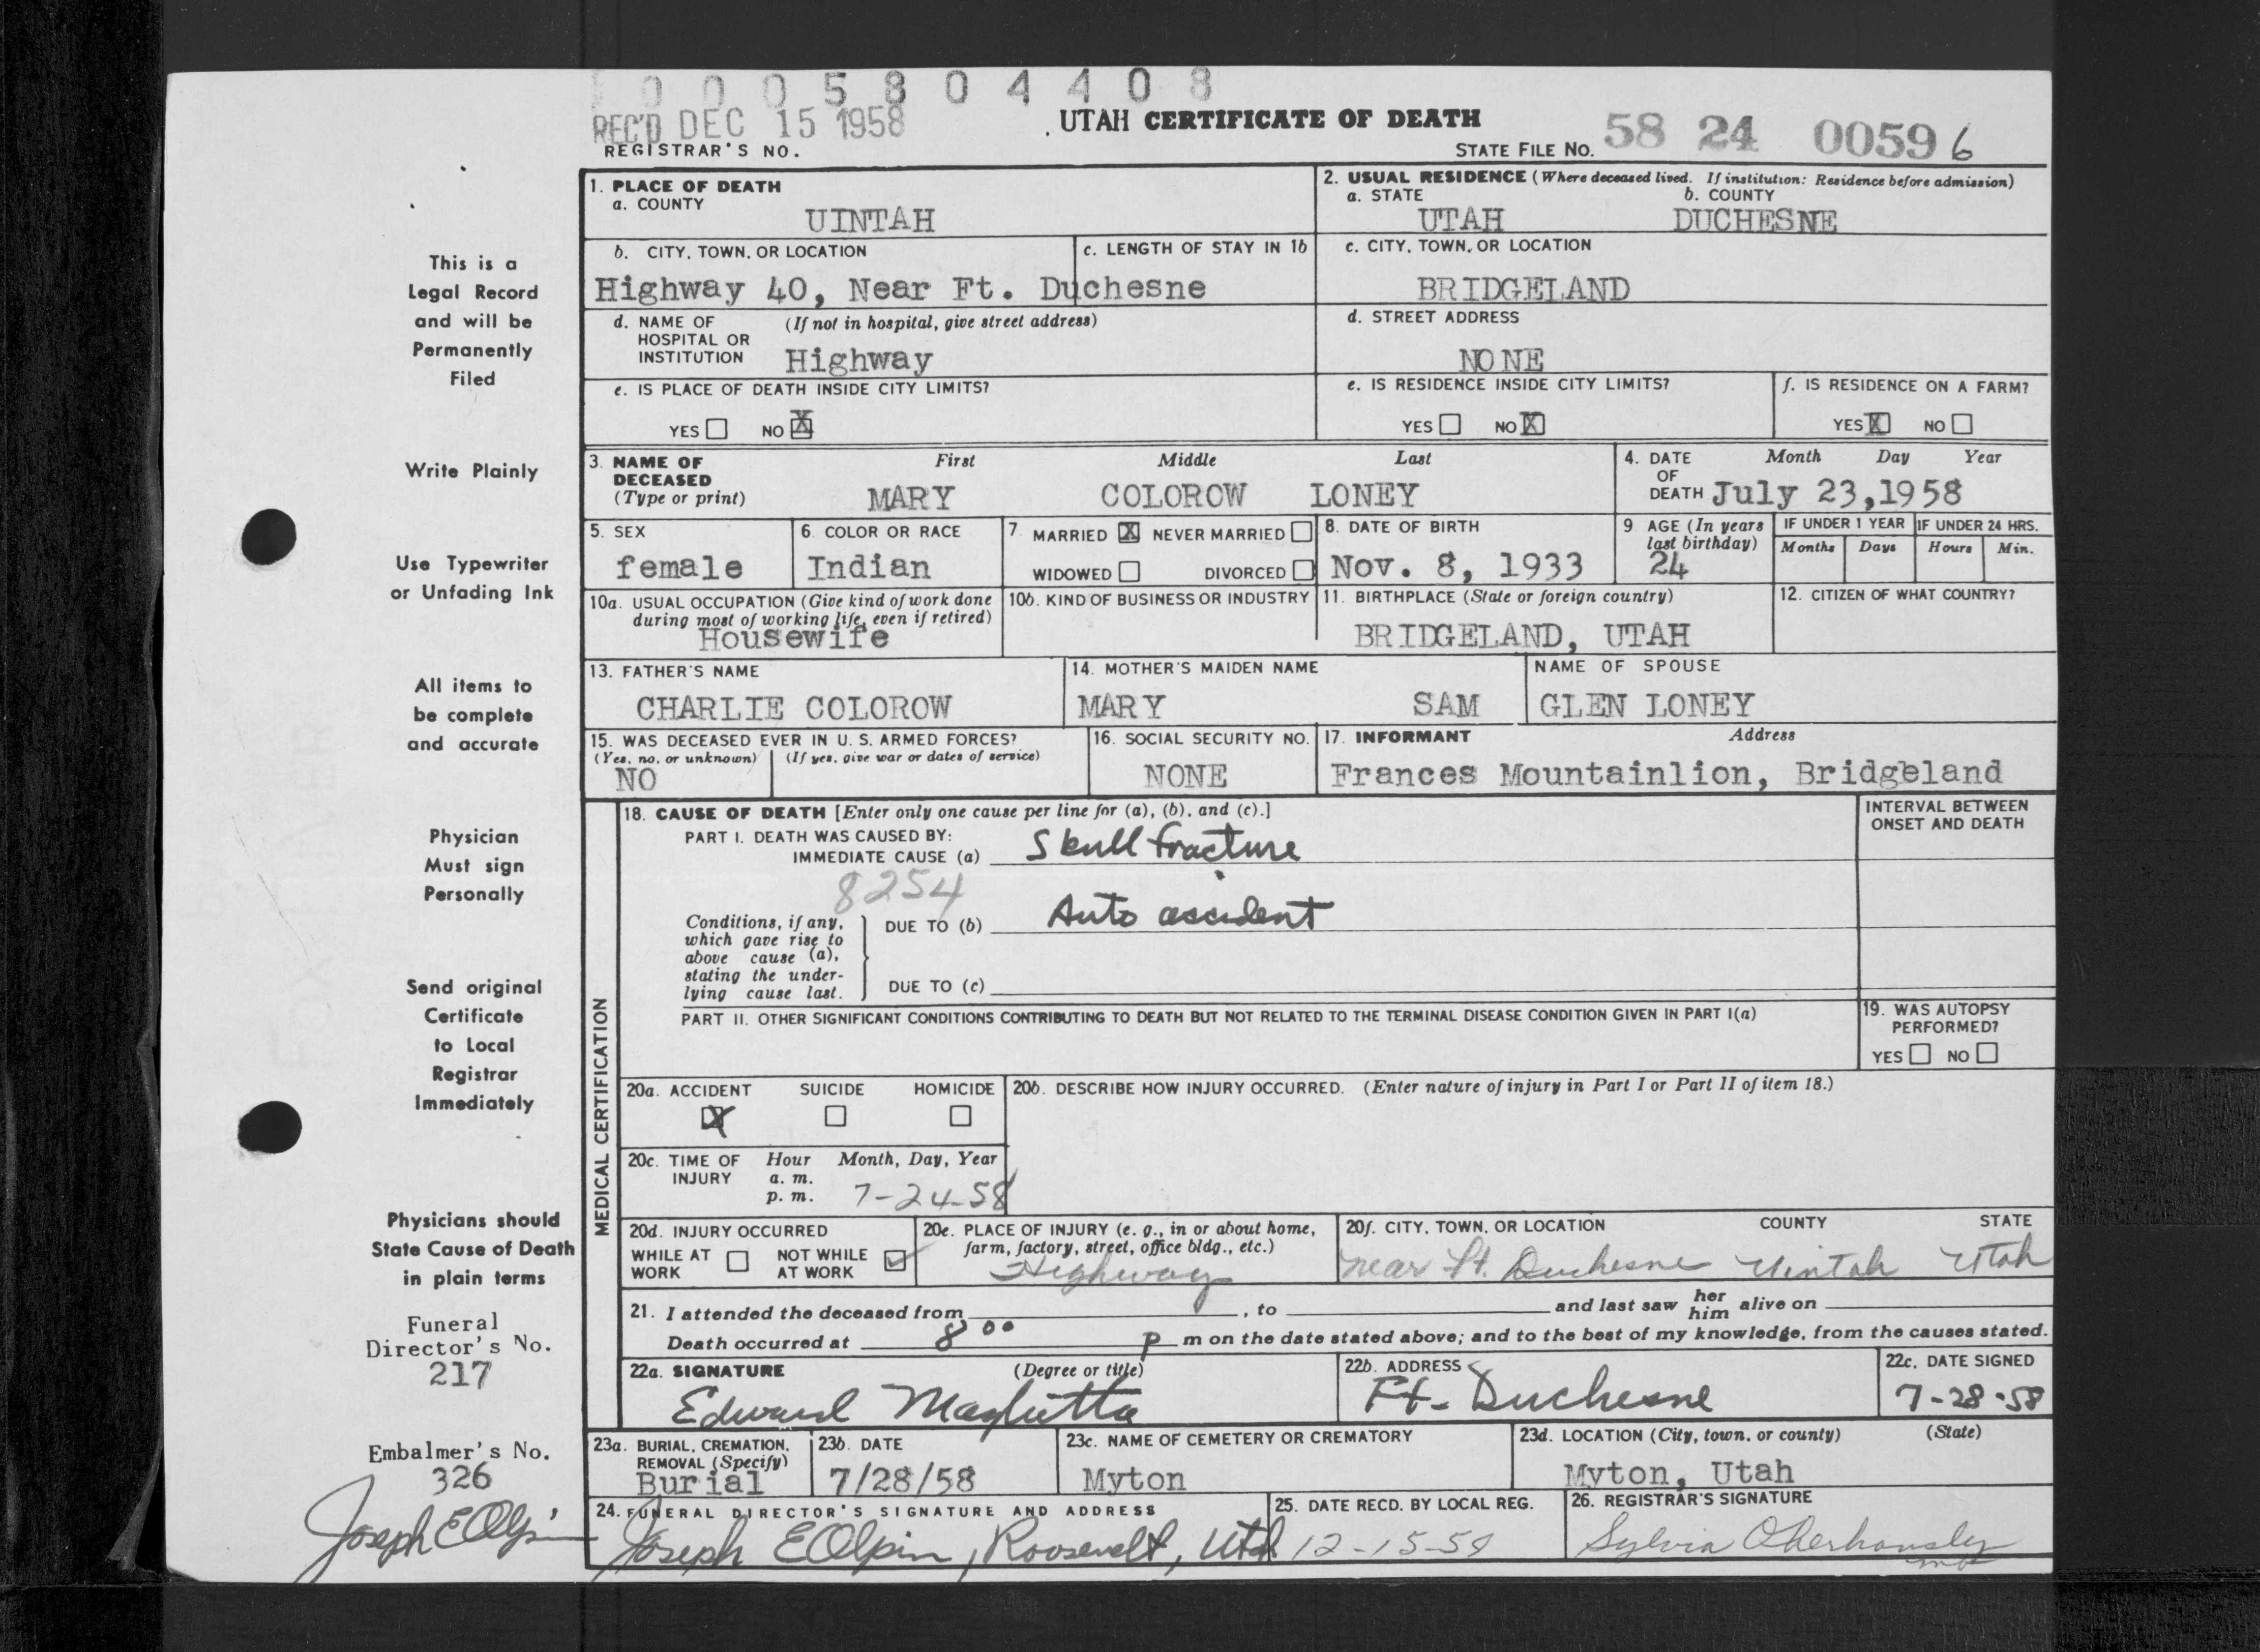 0 0 0 5 8 0 4 4 0 8
REC'D DEC 15 1958
UTAH CERTIFICATE OF DEATH
REGISTRAR'S NO.
STATE FILE NO. 58 24 00596
1. PLACE OF DEATH
a. COUNTY
UINTAH
2. USUAL RESIDENCE (Where deceased lived. If institution: Residence before admission)
a. STATE b. COUNTY
UTAH DUCHESNE
b. CITY, TOWN, OR LOCATION c. LENGTH OF STAY IN 1b
Highway 40, Near Ft. Duchesne
c. CITY, TOWN, OR LOCATION
BRIDGELAND
d. NAME OF HOSPITAL OR INSTITUTION (If not in hospital, give street address)
Highway
d. STREET ADDRESS
NONE
e. IS PLACE OF DEATH INSIDE CITY LIMITS?
YES NO X
e. IS RESIDENCE INSIDE CITY LIMITS?
YES NO X
f. IS RESIDENCE ON A FARM?
YES X NO
3. NAME OF DECEASED (Type or print) First Middle Last
MARY COLOROW LONEY
4. DATE OF DEATH Month Day Year
July 23,1958
5. SEX
female
6. COLOR OR RACE
Indian
7. MARRIED X NEVER MARRIED
WIDOWED DIVORCED
8. DATE OF BIRTH
Nov. 8, 1933
9 AGE (In years last birthday)
24
IF UNDER 1 YEAR IF UNDER 24 HRS.
Months Days Hours Min.
10a. USUAL OCCUPATION (Give kind of work done during most of working life, even if retired)
Housewife
10b. KIND OF BUSINESS OR INDUSTRY
11. BIRTHPLACE (State or foreign country)
BRIDGELAND, UTAH
12. CITIZEN OF WHAT COUNTRY?
13. FATHER'S NAME
CHARLIE COLOROW
14. MOTHER'S MAIDEN NAME
MARY SAM
NAME OF SPOUSE
GLEN LONEY
15. WAS DECEASED EVER IN U. S. ARMED FORCES?
(Yes, no, or unknown) (If yes, give war or dates of service)
NO
16. SOCIAL SECURITY NO.
NONE
17. INFORMANT Address
Frances Mountainlion, Bridgeland
MEDICAL CERTIFICATION
18. CAUSE OF DEATH [Enter only one cause per line for (a), (b), and (c).]
INTERVAL BETWEEN ONSET AND DEATH
PART I. DEATH WAS CAUSED BY:
IMMEDIATE CAUSE (a) Skull fracture
8254
Conditions, if any, which gave rise to above cause (a), stating the underlying cause last.
DUE TO (b) Auto accident
DUE TO (c)
PART II. OTHER SIGNIFICANT CONDITIONS CONTRIBUTING TO DEATH BUT NOT RELATED TO THE TERMINAL DISEASE CONDITION GIVEN IN PART I(a)
19. WAS AUTOPSY PERFORMED?
YES NO
20a. ACCIDENT SUICIDE HOMICIDE
X
20b. DESCRIBE HOW INJURY OCCURRED. (Enter nature of injury in Part I or Part II of item 18.)
20c. TIME OF INJURY Hour Month, Day, Year
a. m.
p. m. 7-24-58
20d. INJURY OCCURRED
WHILE AT WORK NOT WHILE AT WORK ✓
20e. PLACE OF INJURY (e. g., in or about home, farm, factory, street, office bldg., etc.)
Highway
20f. CITY, TOWN, OR LOCATION COUNTY STATE
near Ft. Duchesne Uintah Utah
21. I attended the deceased from , to and last saw her him alive on
Death occurred at 8 00 P m on the date stated above; and to the best of my knowledge, from the causes stated.
22a. SIGNATURE (Degree or title)
Edward Maglietta
22b. ADDRESS
Ft. Duchesne
22c. DATE SIGNED
7-28-58
23a. BURIAL, CREMATION, REMOVAL (Specify)
Burial
23b. DATE
7/28/58
23c. NAME OF CEMETERY OR CREMATORY
Myton
23d. LOCATION (City, town, or county) (State)
Myton, Utah
24. FUNERAL DIRECTOR'S SIGNATURE AND ADDRESS
Joseph E Olpin, Roosevelt, Utah
25. DATE RECD. BY LOCAL REG.
12-15-58
26. REGISTRAR'S SIGNATURE
Sylvia Oberhansly
This is a
Legal Record
and will be
Permanently
Filed
Write Plainly
Use Typewriter
or Unfading Ink
All items to
be complete
and accurate
Physician
Must sign
Personally
Send original
Certificate
to Local
Registrar
Immediately
Physicians should
State Cause of Death
in plain terms
Funeral
Director's No.
217
Embalmer's No.
326
Joseph E Olpin